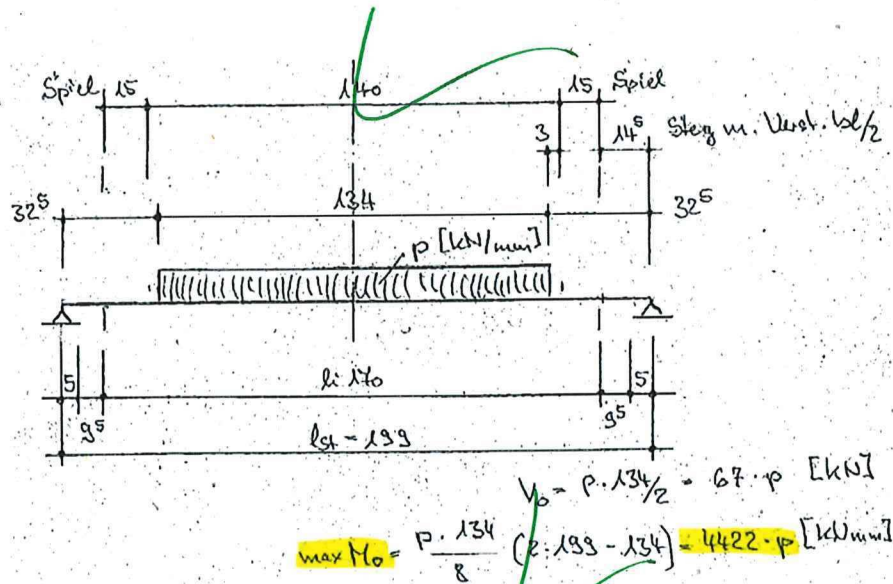 Spiel 15 140 15 Spiel
3 14⁵ Steg m. Verst.
32⁵ 134 32⁵
p [kN/mm]
5 li 170 5
9⁵ 9⁵
lSt = 199
V₀ = p · 134/2 = 67 · p [kN]
max M₀ = p · 134 / 8 (2 · 199 - 134) = 4422 · p [kNmm]